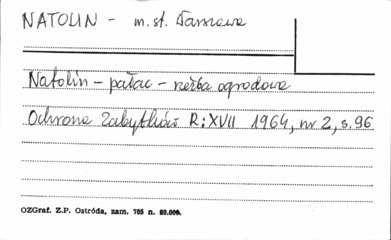 NATOLIN - m. st. Warszawa
Natolin - pałac - rzeźba ogrodowa
Ochrona Zabytków R: XVII 1964, nr 2, s. 96
OZGraf. Z.P. Ostróda, zam. 705 n. 20.000.